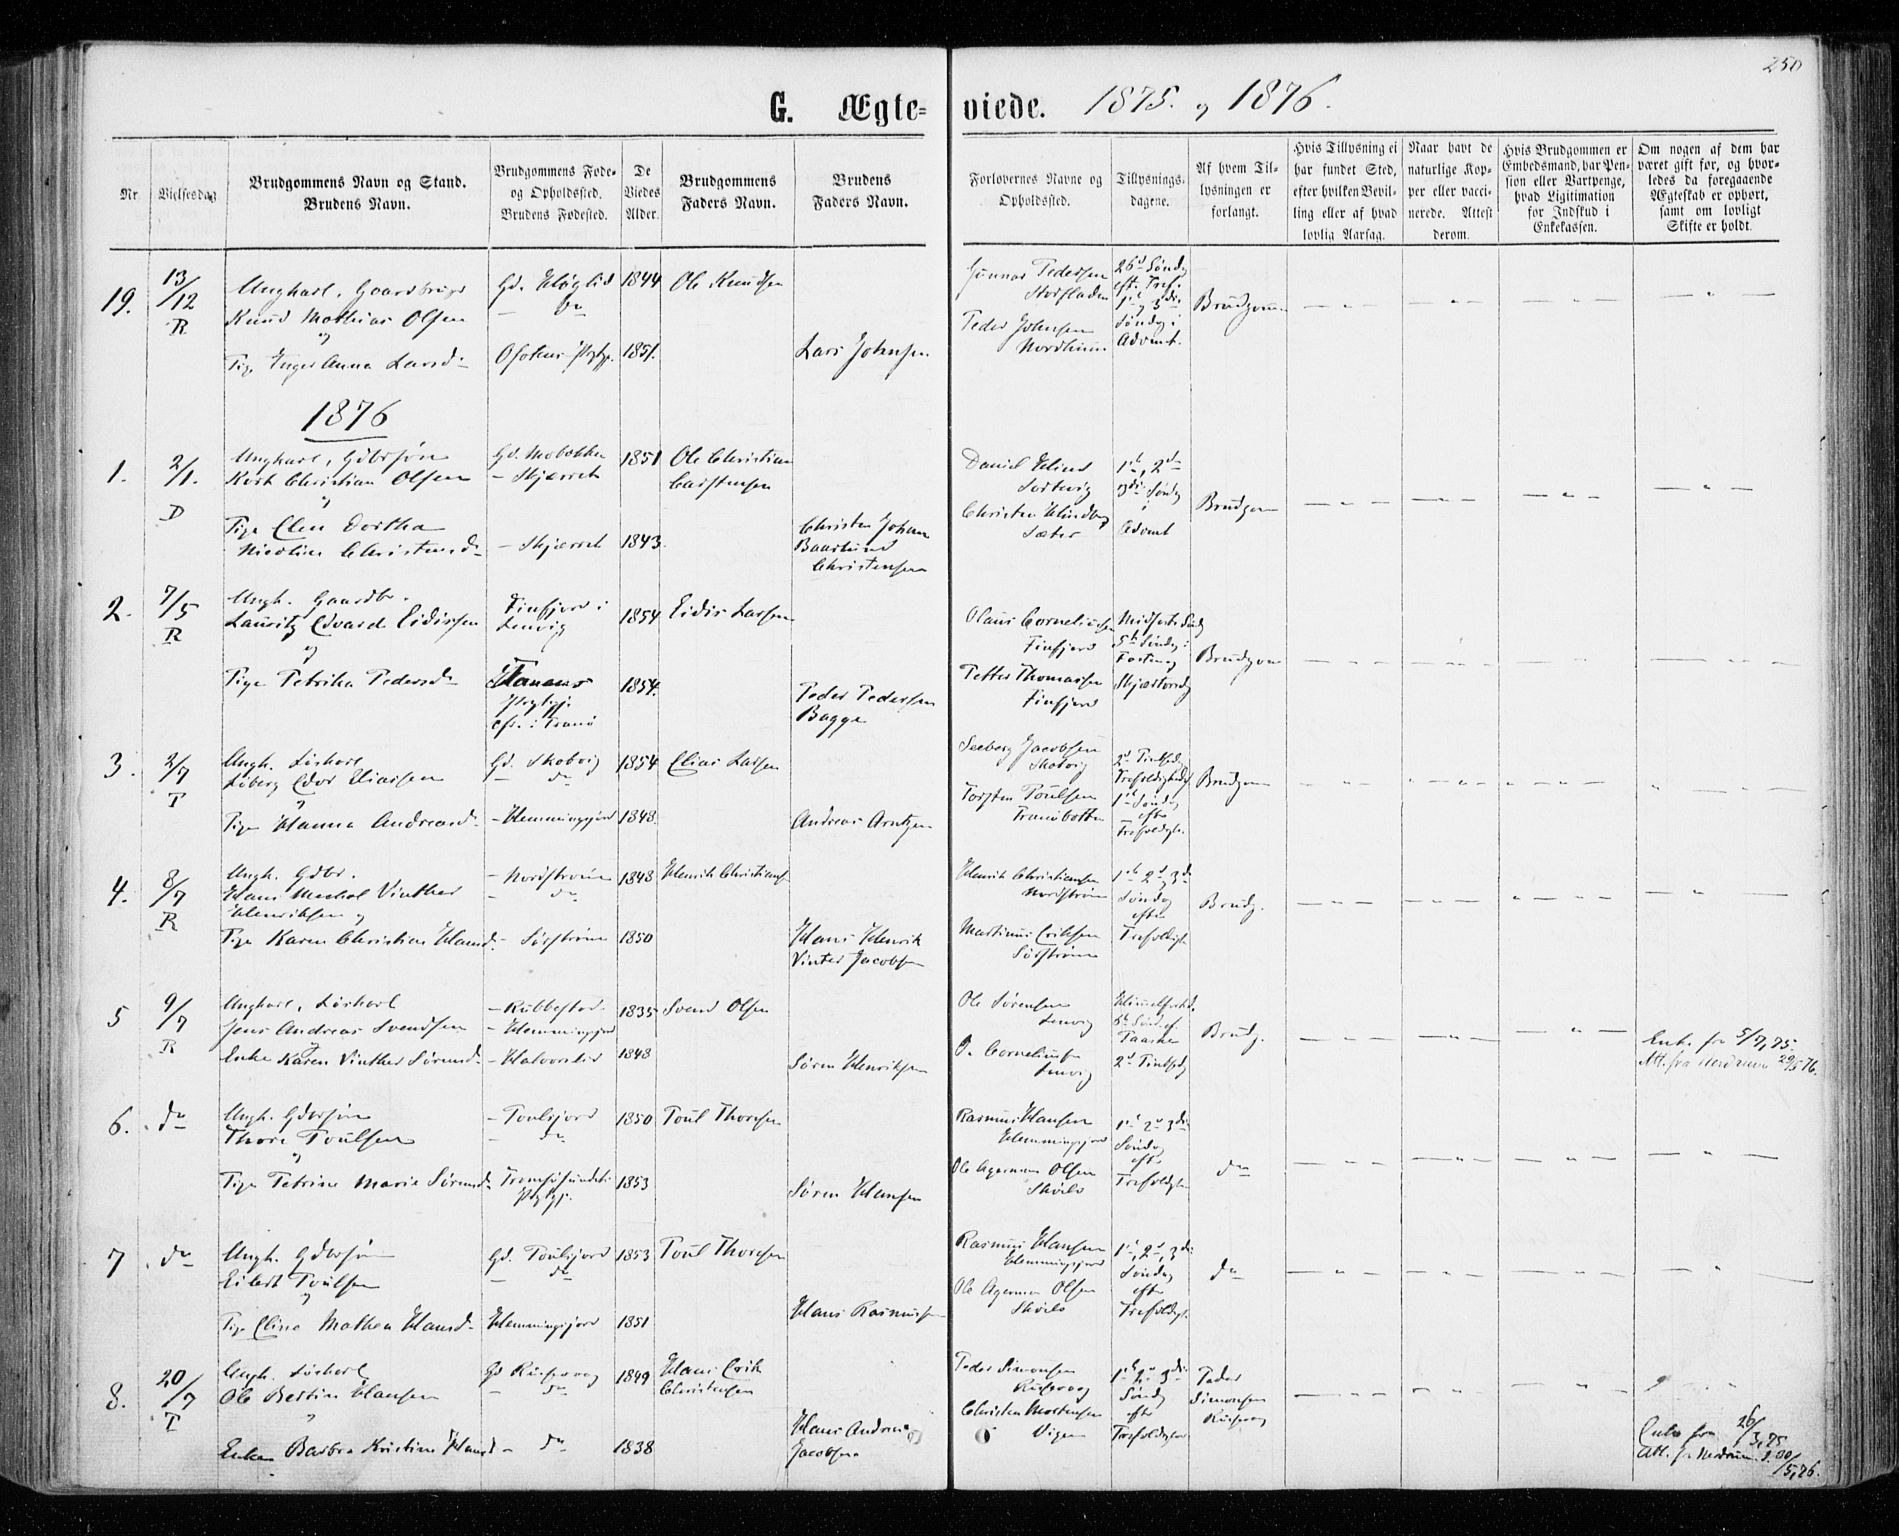 250
G. Ægte= viede. 1875. og 1876.
Nr.
Vielsesdag
Brudgommens Navn og Stand.
Brudens Navn.
Brudgommens Føde-
og Opholdssted.
Brudens Fødested.
De
Viedes
Alder.
Brudgommens
Faders Navn.
Brudens
Faders Navn.
Forlovernes Navne og
Opholdssted.
Tillysnings-
dagene.
Af hvem Til-
lysningen er
forlangt.
Hvis Tillysning ei
har fundet Sted,
efter hvilken Bevil-
ling eller af hvad
lovlig Aarsag.
Naar havt de
naturlige Kop-
per eller vacci-
nerede. Attest
derom.
Hvis Brudgommen er
Embedsmand, har Pen-
sion eller Vartpenge,
hvad Ligitimation
for Indskud i
Enkekassen.
Om nogen af dem har
været gift før, og hvor-
ledes da foregaaende
Ægteskab er ophørt,
samt om lovligt
Skifte er holdt.
19.
13/12
R
Ungkarl, Gaardbruger
Knud Mathias Olsen
og
Pige Inger Anna Larsd.
1844
1851.
Ole Knudsen
Lars Johnsen
Gunnar Pedersen
Peder Johnsen
26d Søndg
eft. Tref.
Søndg i
Advent.
Brudgom
1876
1.
2/1.
D
Ungkarl, Gdbrsøn
Kort Christian Olsen
og
Pige Elen Dorthea
Nicoline Christensd.
- Skjærret
- Skjærret
1851
1843.
Ole Christian
Carstensen
Christen Johan
Baarlund
Christensen
Daniel
Christen
Sæter
1ste, 2den
Søndg
i
Advent
Brudgom
2.
7/5
R
Ungk. Gaardbr.
Lauritz Edvard Eidissen
og
Pige Petrika Pedersd.
Finfjord i
Lenvig
Prgtgj.
i Tranø
1854
1854.
Eidis Larsen
Peder Pedersen
Bagge
Olaus Corneliussen
Finfjord
Petter Thomassen
Finfjord
Midfaste Søndg
5te Søndg i
Fasten og
Skjærtorsdg
Brudgom
3.
2/7
T
Ungk. Løskarl
Søberg Edor Eliassen
og
Pige Hanna Andreasd.
Gd. Skatvig
- do
- Hemmingsjord
1854
1848.
Elias Larsen
Andreas Arntzen
Seeberg Jacobsen
Skatvig
Torsten Poulsen
Tranøbotten
2d Pintsedg
Trefoldighedsf
1ste Søndg
efter
Trefoldigh.
Brudgom
4.
8/7
R
Ungk. Gdbr.
Hans Mechal Vinther
Henriksen og
Pige Karen Christine Hansd.
- Nordstrøm
- do
- Sørstrøm
1848
1850
Henrik Christians
Hans Henrik
Vinter Jacobsen
Henrik Christiansen
Nordstrøm
Martinus Eriksen
Sørstrøm
1ste 2d 3die
Søndg
efter
Trefoldigh
Brudg.
5
9/7
R
Ungkarl, Løskarl
Jens Andreas Svendsen
og
Enke Karen Vinther Sørensd.
- Rubbestad
- Hemmingsjord
1835
1848
Svend Olsen
Søren Henriksen
Ole Sørensen
Lenvig
O. Corneliussen
Lenvig
Himmelfartsd.
6te Sønd. ef.
Paaske
2d Pintsedg
Brudg.
Enk. fra 5/7, 75.
Att. fra 29/5 76.
6.
do
Ungk. Gdbrsøn
Thore Poulsen
og
Pige Petrine Marie Sørensd.
- Poulsjord
- do
Tromsøsundets
Prgtgj.
1850
1853
Poul Thoresen
Søren Hansen
Rasmus Hansen
Hemmingsjord
Ole Agerman Olsen
1ste 2d 3die
Søndg
efter
Trefoldigh
do
7
do
Ungk. Gdbrsøn
Eilert Poulsen
og
Pige Elina Mathea Hansd.
Gd. Poulsjord
- do
Hemmingsjord
1853
1851
Poul Thoresen
Hans Rasmussen
Rasmus Hansen
Hemmingsjord
Ole Agerman Olsen
1ste, 2d, 3die
Søndag
efter
Trefoldigh.
do
8.
20/7
T
Ungk. Løskarl
Ole Bertin Hansen
Enke Barbro Kristine Hansd
- do
- do
1849
1838
Hans Erik
Christensen
Hans Andreas
Jacobsen
Peder Simonsen
Christen Mortensen
1ste 2d 3die
Søndg
efter
Trefoldighed
Peder
Simonsen
Enke fra 26/3, 75
Att.